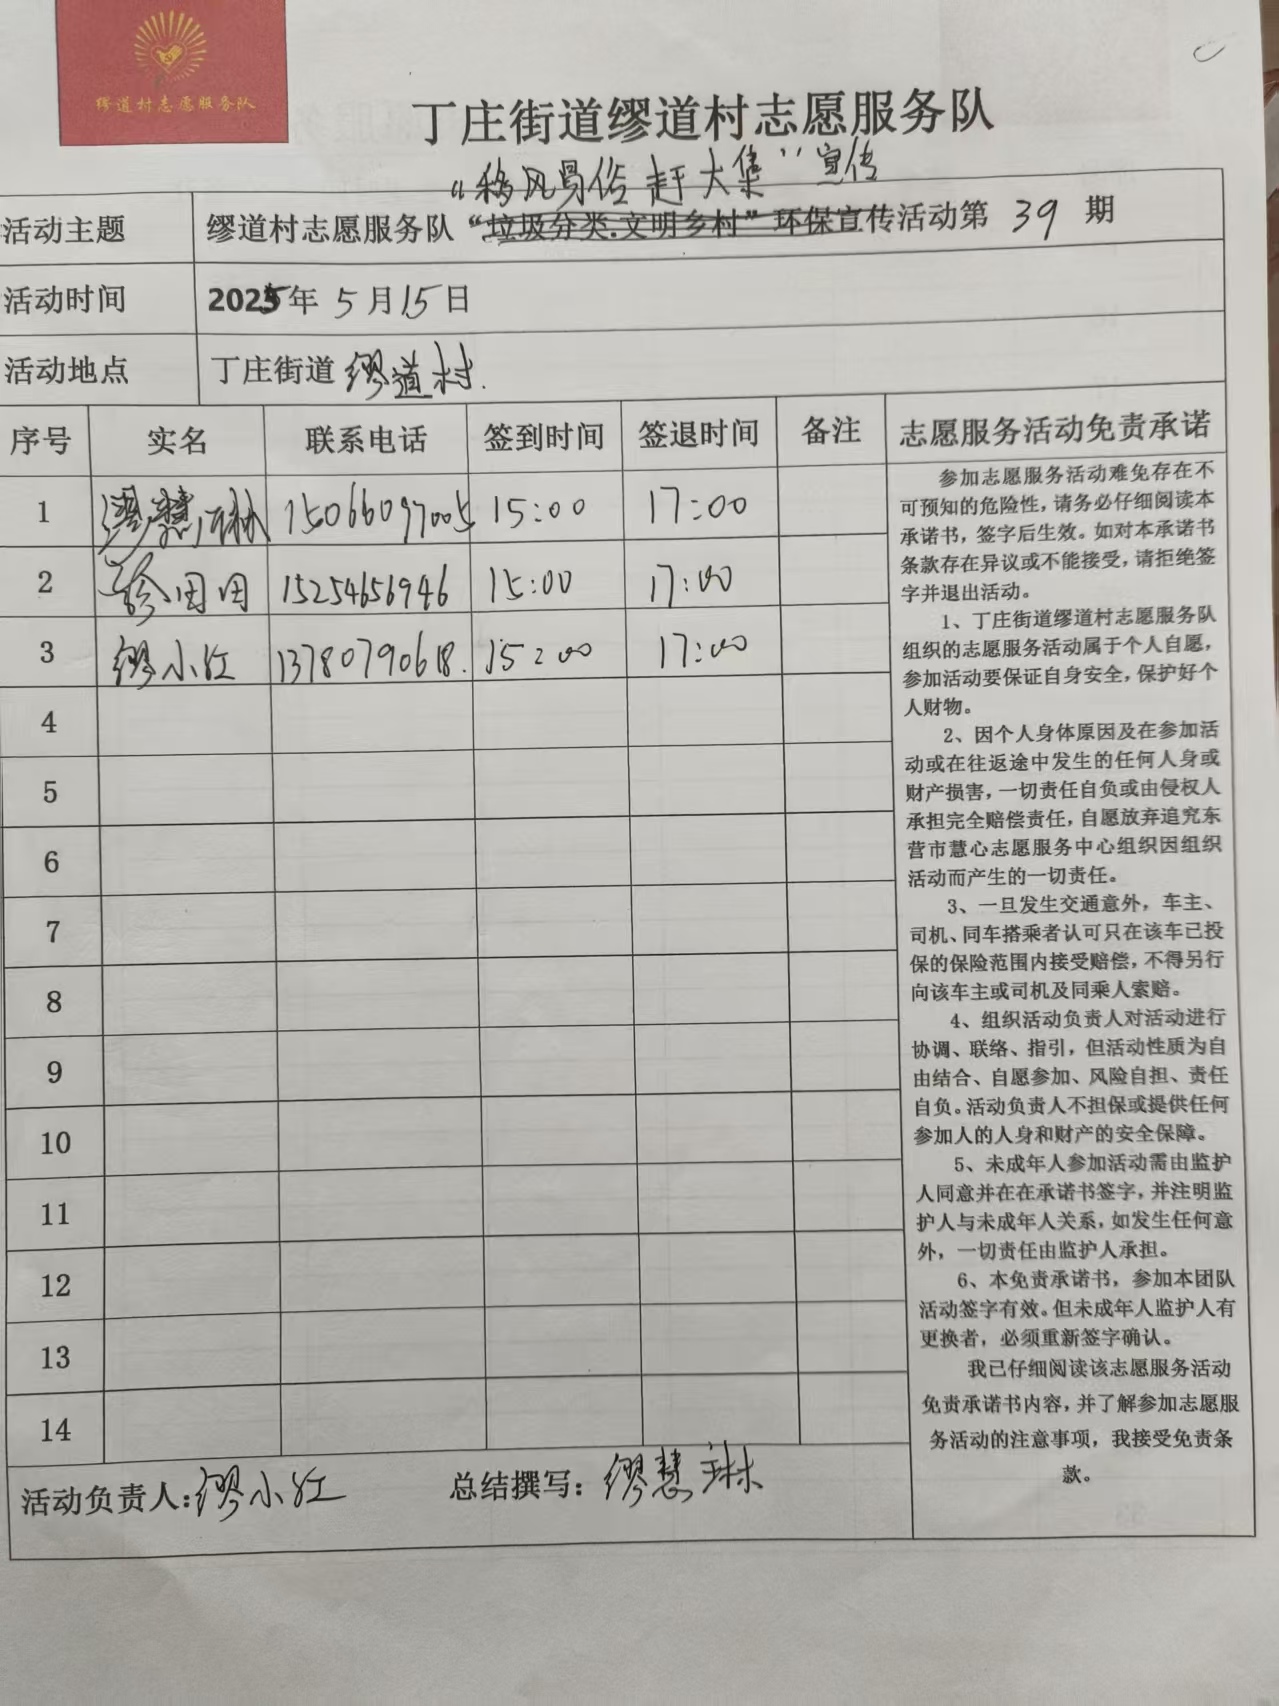 缪道村志愿服务队
丁庄街道缪道村志愿服务队
“移风易俗 赶大集”宣传
活动主题 缪道村志愿服务队“垃圾分类.文明乡村”环保宣传活动第 39 期
活动时间 2025年 5 月 15 日
活动地点 丁庄街道 缪道村.
序号 实名 联系电话 签到时间 签退时间 备注 志愿服务活动免责承诺
1 缪慧琳 15066097005 15:00 17:00
2 田田 15254656946 15:00 17:00
3 缪小红 13780790618. 15:00 17:00
4
5
6
7
8
9
10
11
12
13
14
参加志愿服务活动难免存在不
可预知的危险性，请务必仔细阅读本
承诺书，签字后生效。如对本承诺书
条款存在异议或不能接受，请拒绝签
字并退出活动。
1、丁庄街道缪道村志愿服务队
组织的志愿服务活动属于个人自愿，
参加活动要保证自身安全，保护好个
人财物。
2、因个人身体原因及在参加活
动或在往返途中发生的任何人身或
财产损害，一切责任自负或由侵权人
承担完全赔偿责任，自愿放弃追究东
营市慧心志愿服务中心组织因组织
活动而产生的一切责任。
3、一旦发生交通意外，车主、
司机、同车搭乘者认可只在该车已投
保的保险范围内接受赔偿，不得另行
向该车主或司机及同乘人索赔。
4、组织活动负责人对活动进行
协调、联络、指引，但活动性质为自
由结合、自愿参加、风险自担、责任
自负。活动负责人不担保或提供任何
参加人的人身和财产的安全保障。
5、未成年人参加活动需由监护
人同意并在在承诺书签字，并注明监
护人与未成年人关系，如发生任何意
外，一切责任由监护人承担。
6、本免责承诺书，参加本团队
活动签字有效。但未成年人监护人有
更换者，必须重新签字确认。
我已仔细阅读该志愿服务活动
免责承诺书内容，并了解参加志愿服
务活动的注意事项，我接受免责条
款。
活动负责人：缪小红 总结撰写：缪慧琳